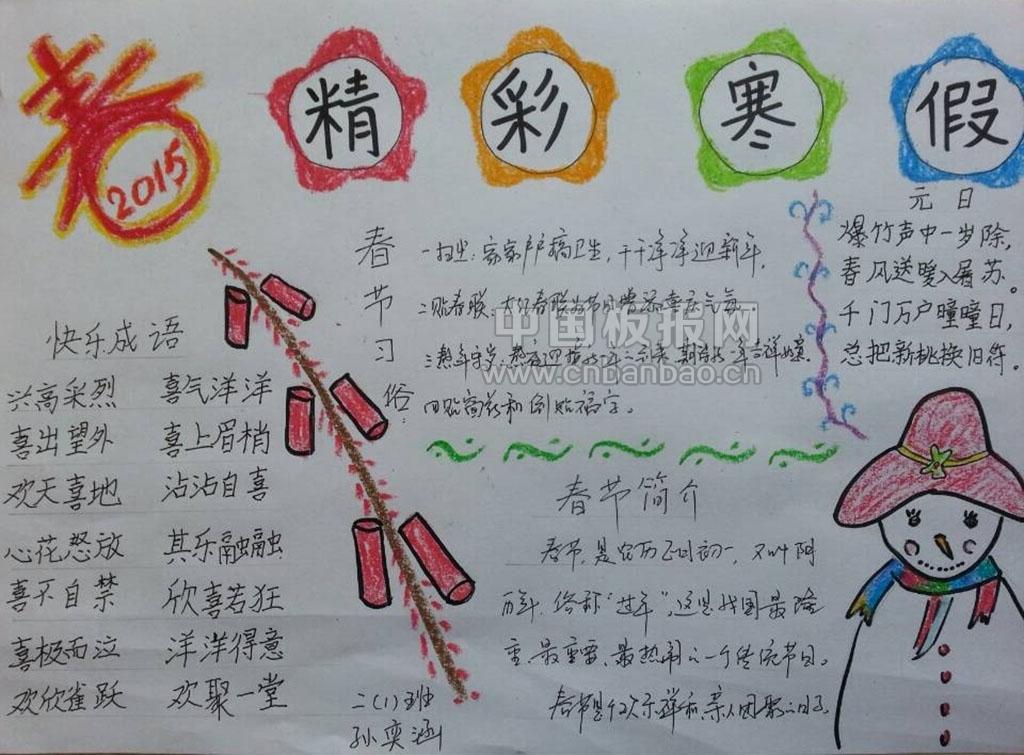 春
2015
精彩寒假
元日
爆竹声中一岁除,
春风送暖入屠苏。
千门万户曈曈日,
总把新桃换旧符。
春节习俗
一扫尘:家家户户搞卫生,干干净净迎新年,
二贴春联:大红春联为节日增添喜庆气氛
三熬年守岁,熬夜迎接
四贴窗花和倒贴福字。
中国板报网
www.cnbanbao.cn
快乐成语
兴高采烈 喜气洋洋
喜出望外 喜上眉梢
欢天喜地 沾沾自喜
心花怒放 其乐融融
喜不自禁 欣喜若狂
喜极而泣 洋洋得意
欢欣雀跃 欢聚一堂
二(1)班
孙奕涵
春节简介
春节,是农历正月初一,又叫阴
历年,俗称“过年”,这是我国最隆
重、最重要、最热闹的一个传统节日。
春节是个欢乐祥和、亲人团聚的日子